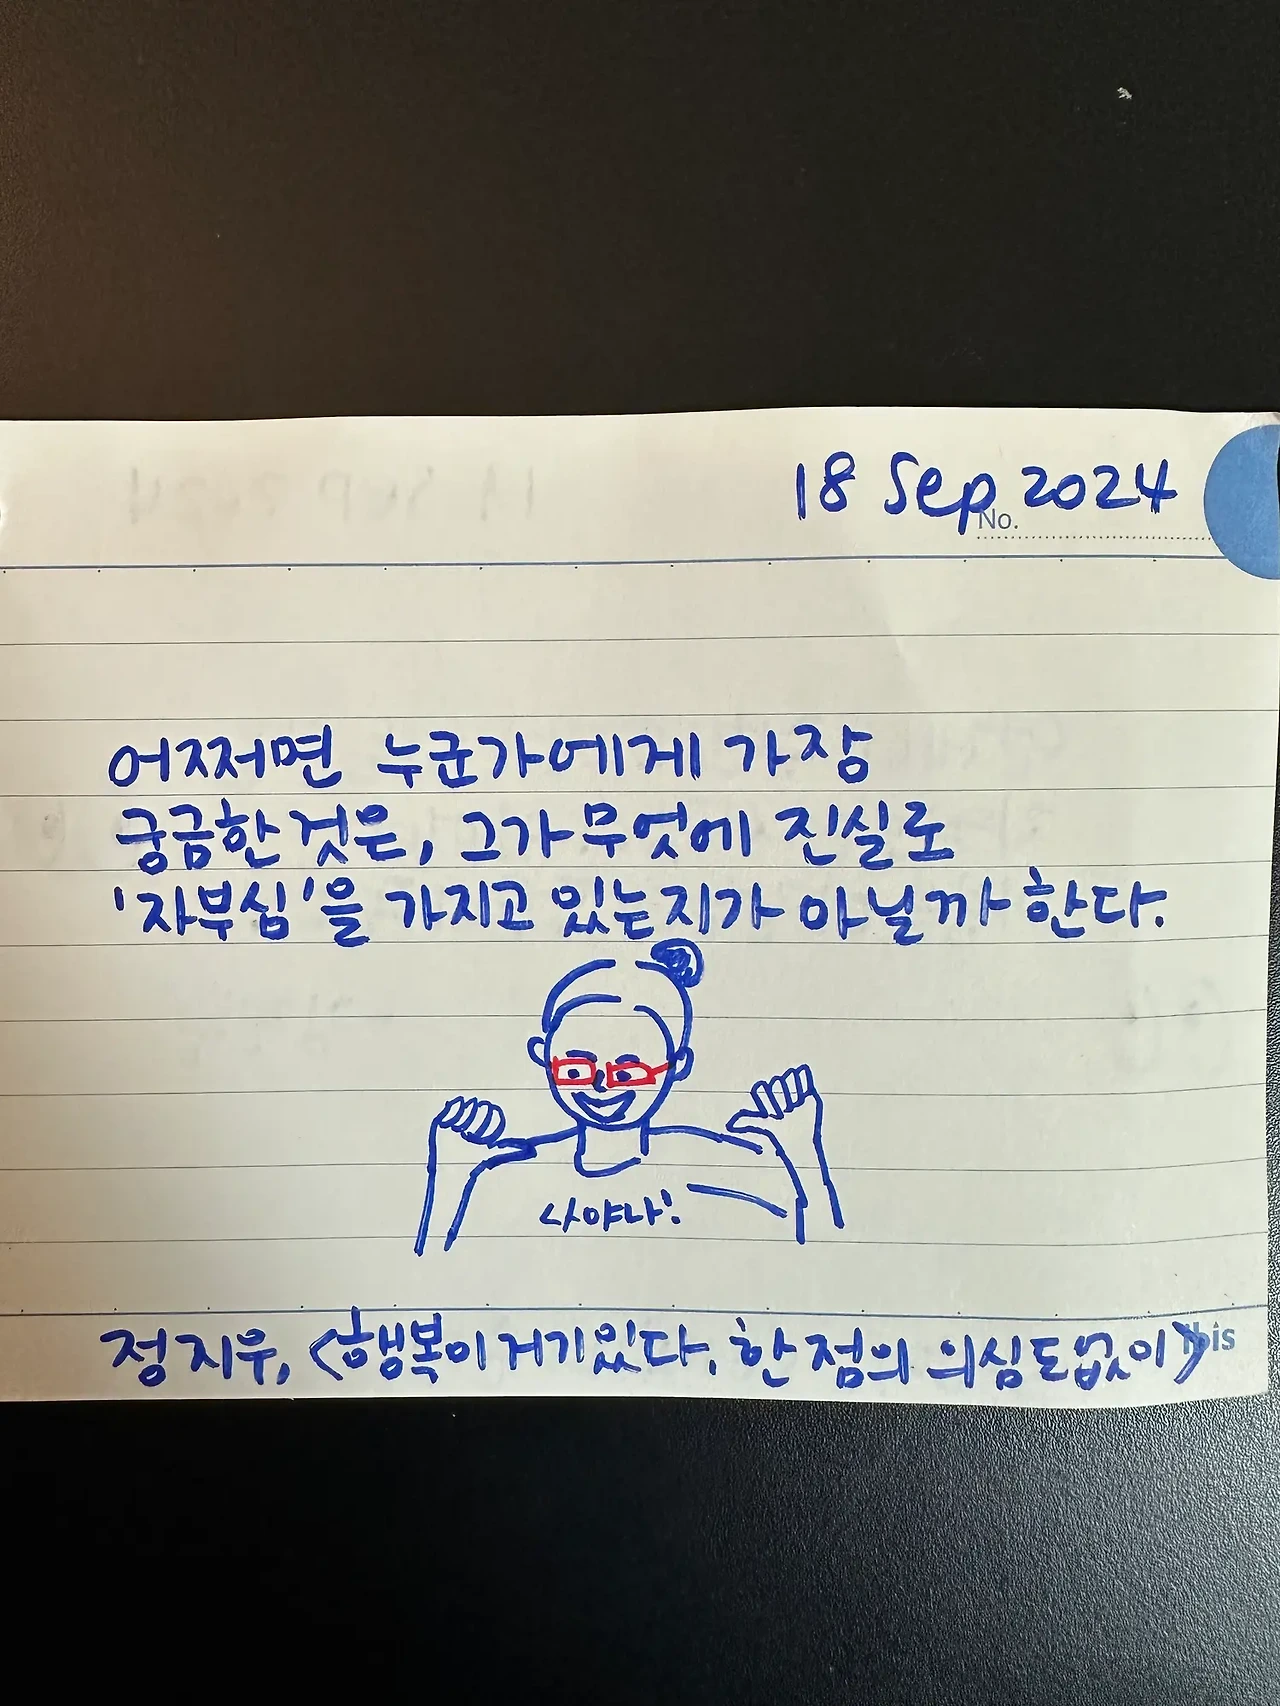 18 Sep 2024
No.
어쩌면 누군가에게 가장
궁금한 것은, 그가 무엇에 진실로
'자부심'을 가지고 있는지가 아닐까 한다.
나야나!
정지우, <행복이 거기 있다, 한 점의 의심도 없이>